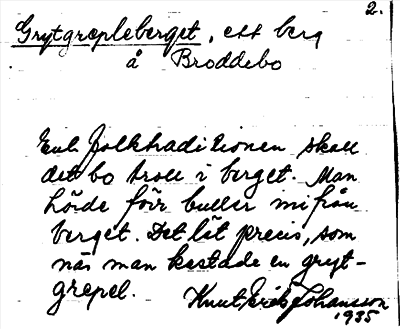 2.
Grytgrepleberget, ett berg
å Broddebo
Enl. folktraditionen skall
det bo troll i berget. Man
hörde förr buller inifrån
berget. Det lät precis, som
när man kastade en gryt-
grepel.
Knut Erik Johansson
1935